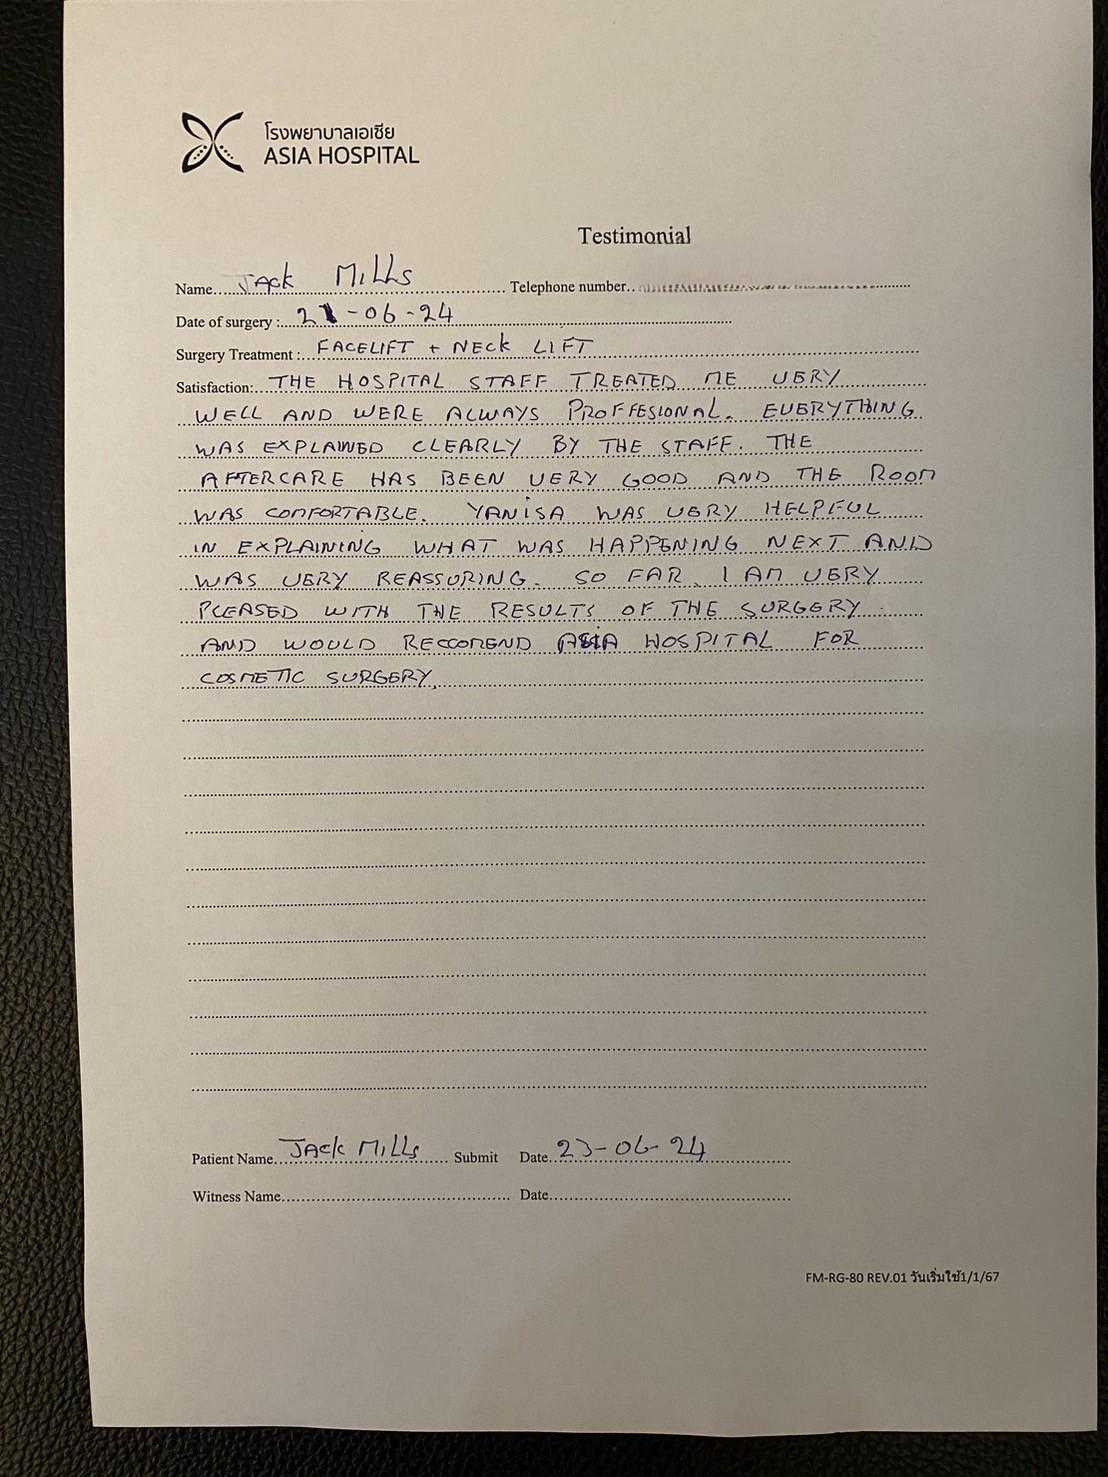 โรงพยาบาลเอเชีย
ASIA HOSPITAL
Testimonial
Name Jack Mills Telephone number
Date of surgery : 21-06-24
Surgery Treatment : FACELIFT + NECK LIFT
Satisfaction: THE HOSPITAL STAFF TREATED ME VERY
WELL AND WERE ALWAYS PROFFESIONAL. EVERYTHING
WAS EXPLAINED CLEARLY BY THE STAFF. THE
AFTERCARE HAS BEEN VERY GOOD AND THE ROOM
WAS COMFORTABLE. YANISA WAS VERY HELPFUL
IN EXPLAINING WHAT WAS HAPPENING NEXT AND
WAS VERY REASSURING. SO FAR I AM VERY
PLEASED WITH THE RESULTS OF THE SURGERY
AND WOULD RECCOMEND ASIA HOSPITAL FOR
COSMETIC SURGERY.
Patient Name Jack Mills Submit Date 23-06-24
Witness Name Date
FM-RG-80 REV.01 วันเริ่มใช้1/1/67